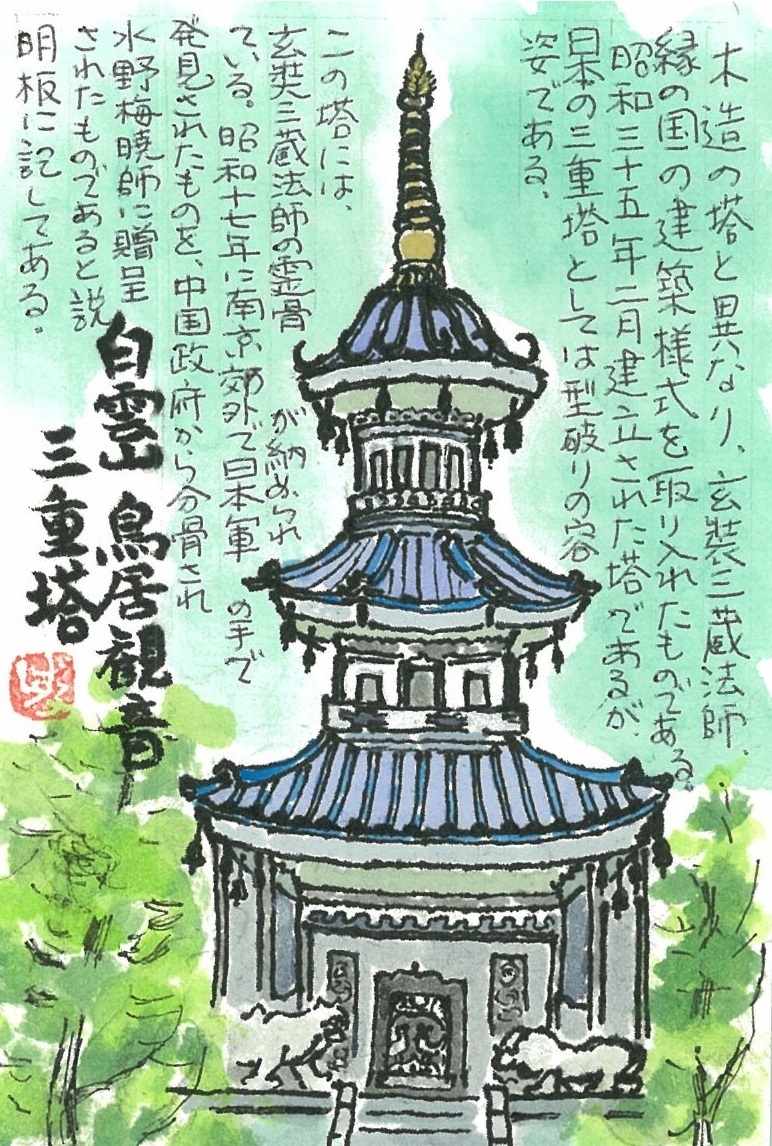 木造の塔と異なり、玄奘三蔵法師、
縁の国の建築様式を取り入れたものである。
昭和三十五年二月建立された塔であるが、
日本の三重塔としては型破りの容
姿である。
この塔には、
玄奘三蔵法師の霊骨が納められ
ている。昭和十七年に南京郊外で日本軍の手で
発見されたものを、中国政府から分骨され
水野梅暁師に贈呈
されたものであると説
明板に記してある。
白雲山 鳥居観音
三重塔